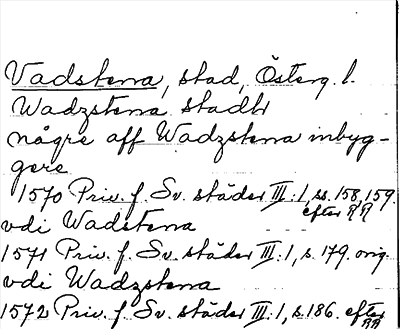 Vadstena, stad, Österg. l.
Wadzstena stadht
någre aff Wadzstena inbyg-
gere
1570 Priv. f. Sv. städer III:1, ss. 158, 159.
efter RR
vdi Wadstena
1571 Priv. f. Sv. städer III:1, s. 179. orig.
vdi Wadzstena
1572 Priv. f. Sv. städer III:1, s. 186. efter
RR